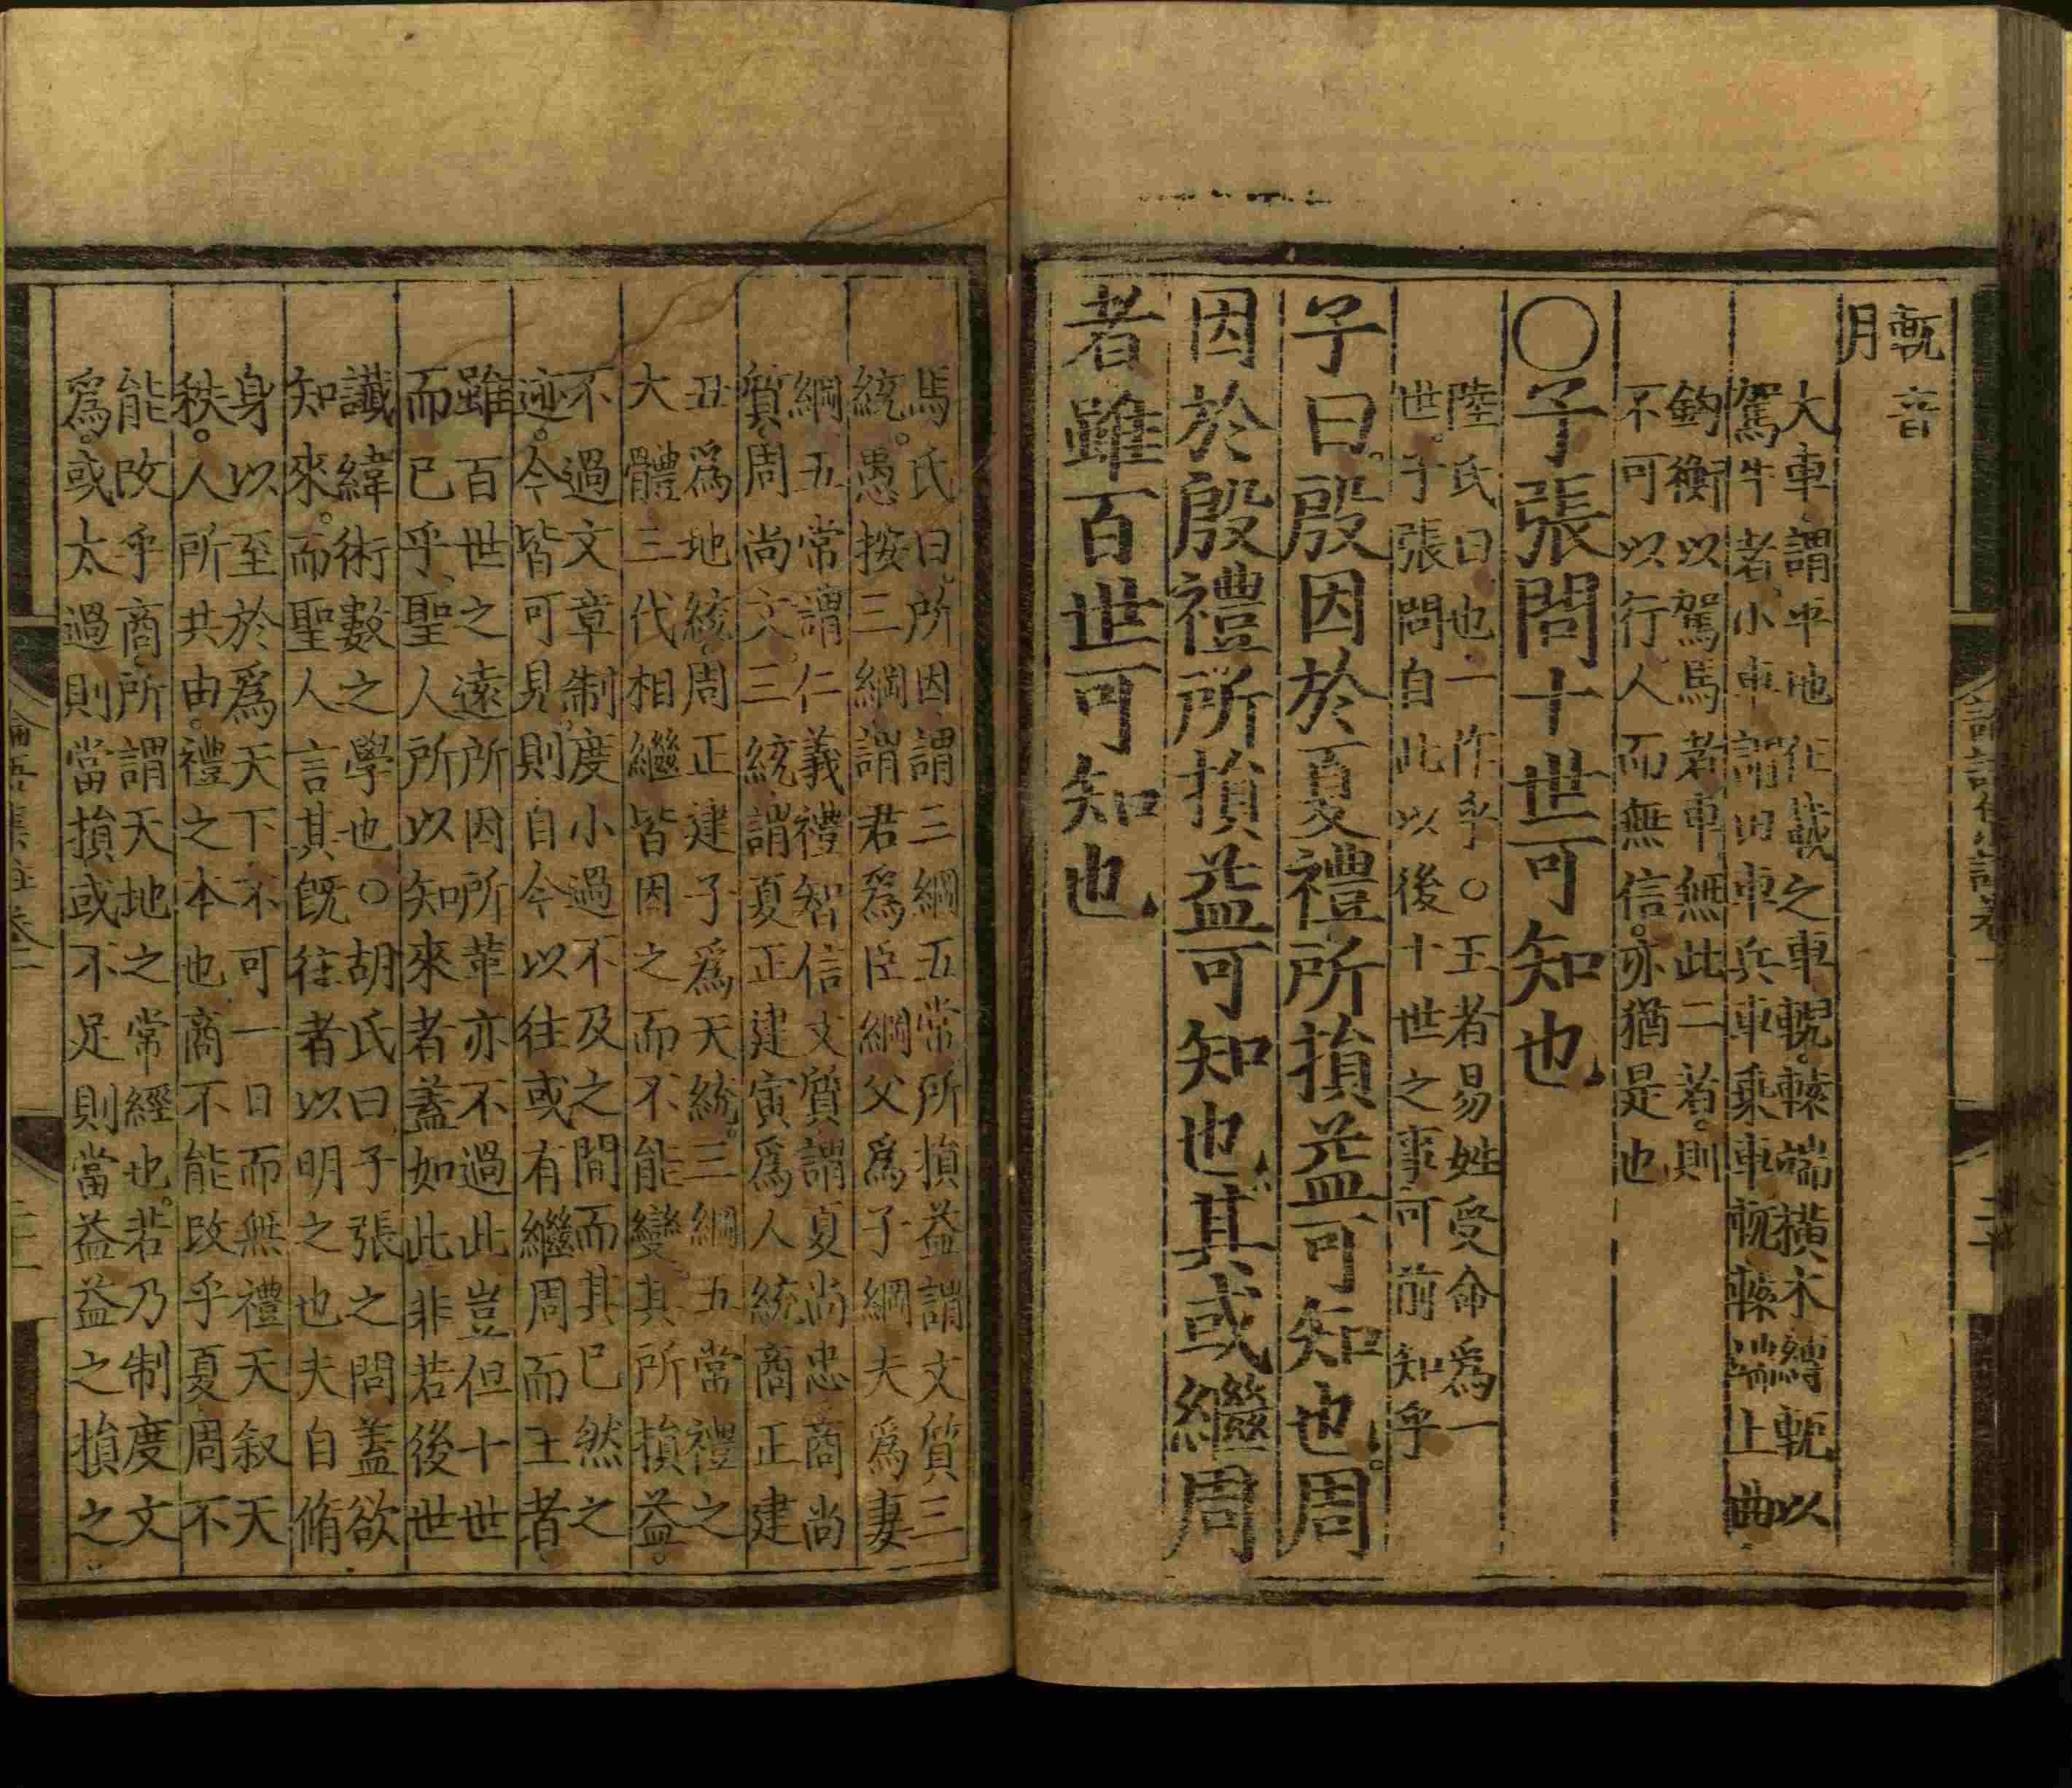 軏音
月
大車謂平地任載之車輗轅端橫木縛軛以
駕牛者小車謂田車兵車乘車軏轅端上曲
鈎衡以駕馬者車無此二者則
不可以行人而無信亦猶是也
○子張問十世可知也
陸氏曰也一作乎○王者易姓受命爲一
世子張問自此以後十世之事可前知乎
子曰殷因於夏禮所損益可知也周
因於殷禮所損益可知也其或繼周
者雖百世可知也
馬氏曰所因謂三綱五常所損益謂文質三
統愚按三綱謂君爲臣綱父爲子綱夫爲妻
綱五常謂仁義禮智信文質謂夏尚忠商尚
質周尚文三統謂夏正建寅爲人統商正建
丑爲地統周正建子爲天統三綱五常禮之
大體三代相繼皆因之而不能變其所損益
不過文章制度小過不及之間而其已然之
迹今皆可見則自今以往或有繼周而王者
雖百世之遠所因所革亦不過此豈但十世
而已乎聖人所以知來者蓋如此非若後世
讖緯術數之學也○胡氏曰子張之問蓋欲
知來而聖人言其旣往者以明之也夫自脩
身以至於爲天下不可一日而無禮天叙天
秩人所共由禮之本也商不能改乎夏周不
能改乎商所謂天地之常經也若乃制度文
爲或太過則當損或不足則當益益之損之
論語集註卷一